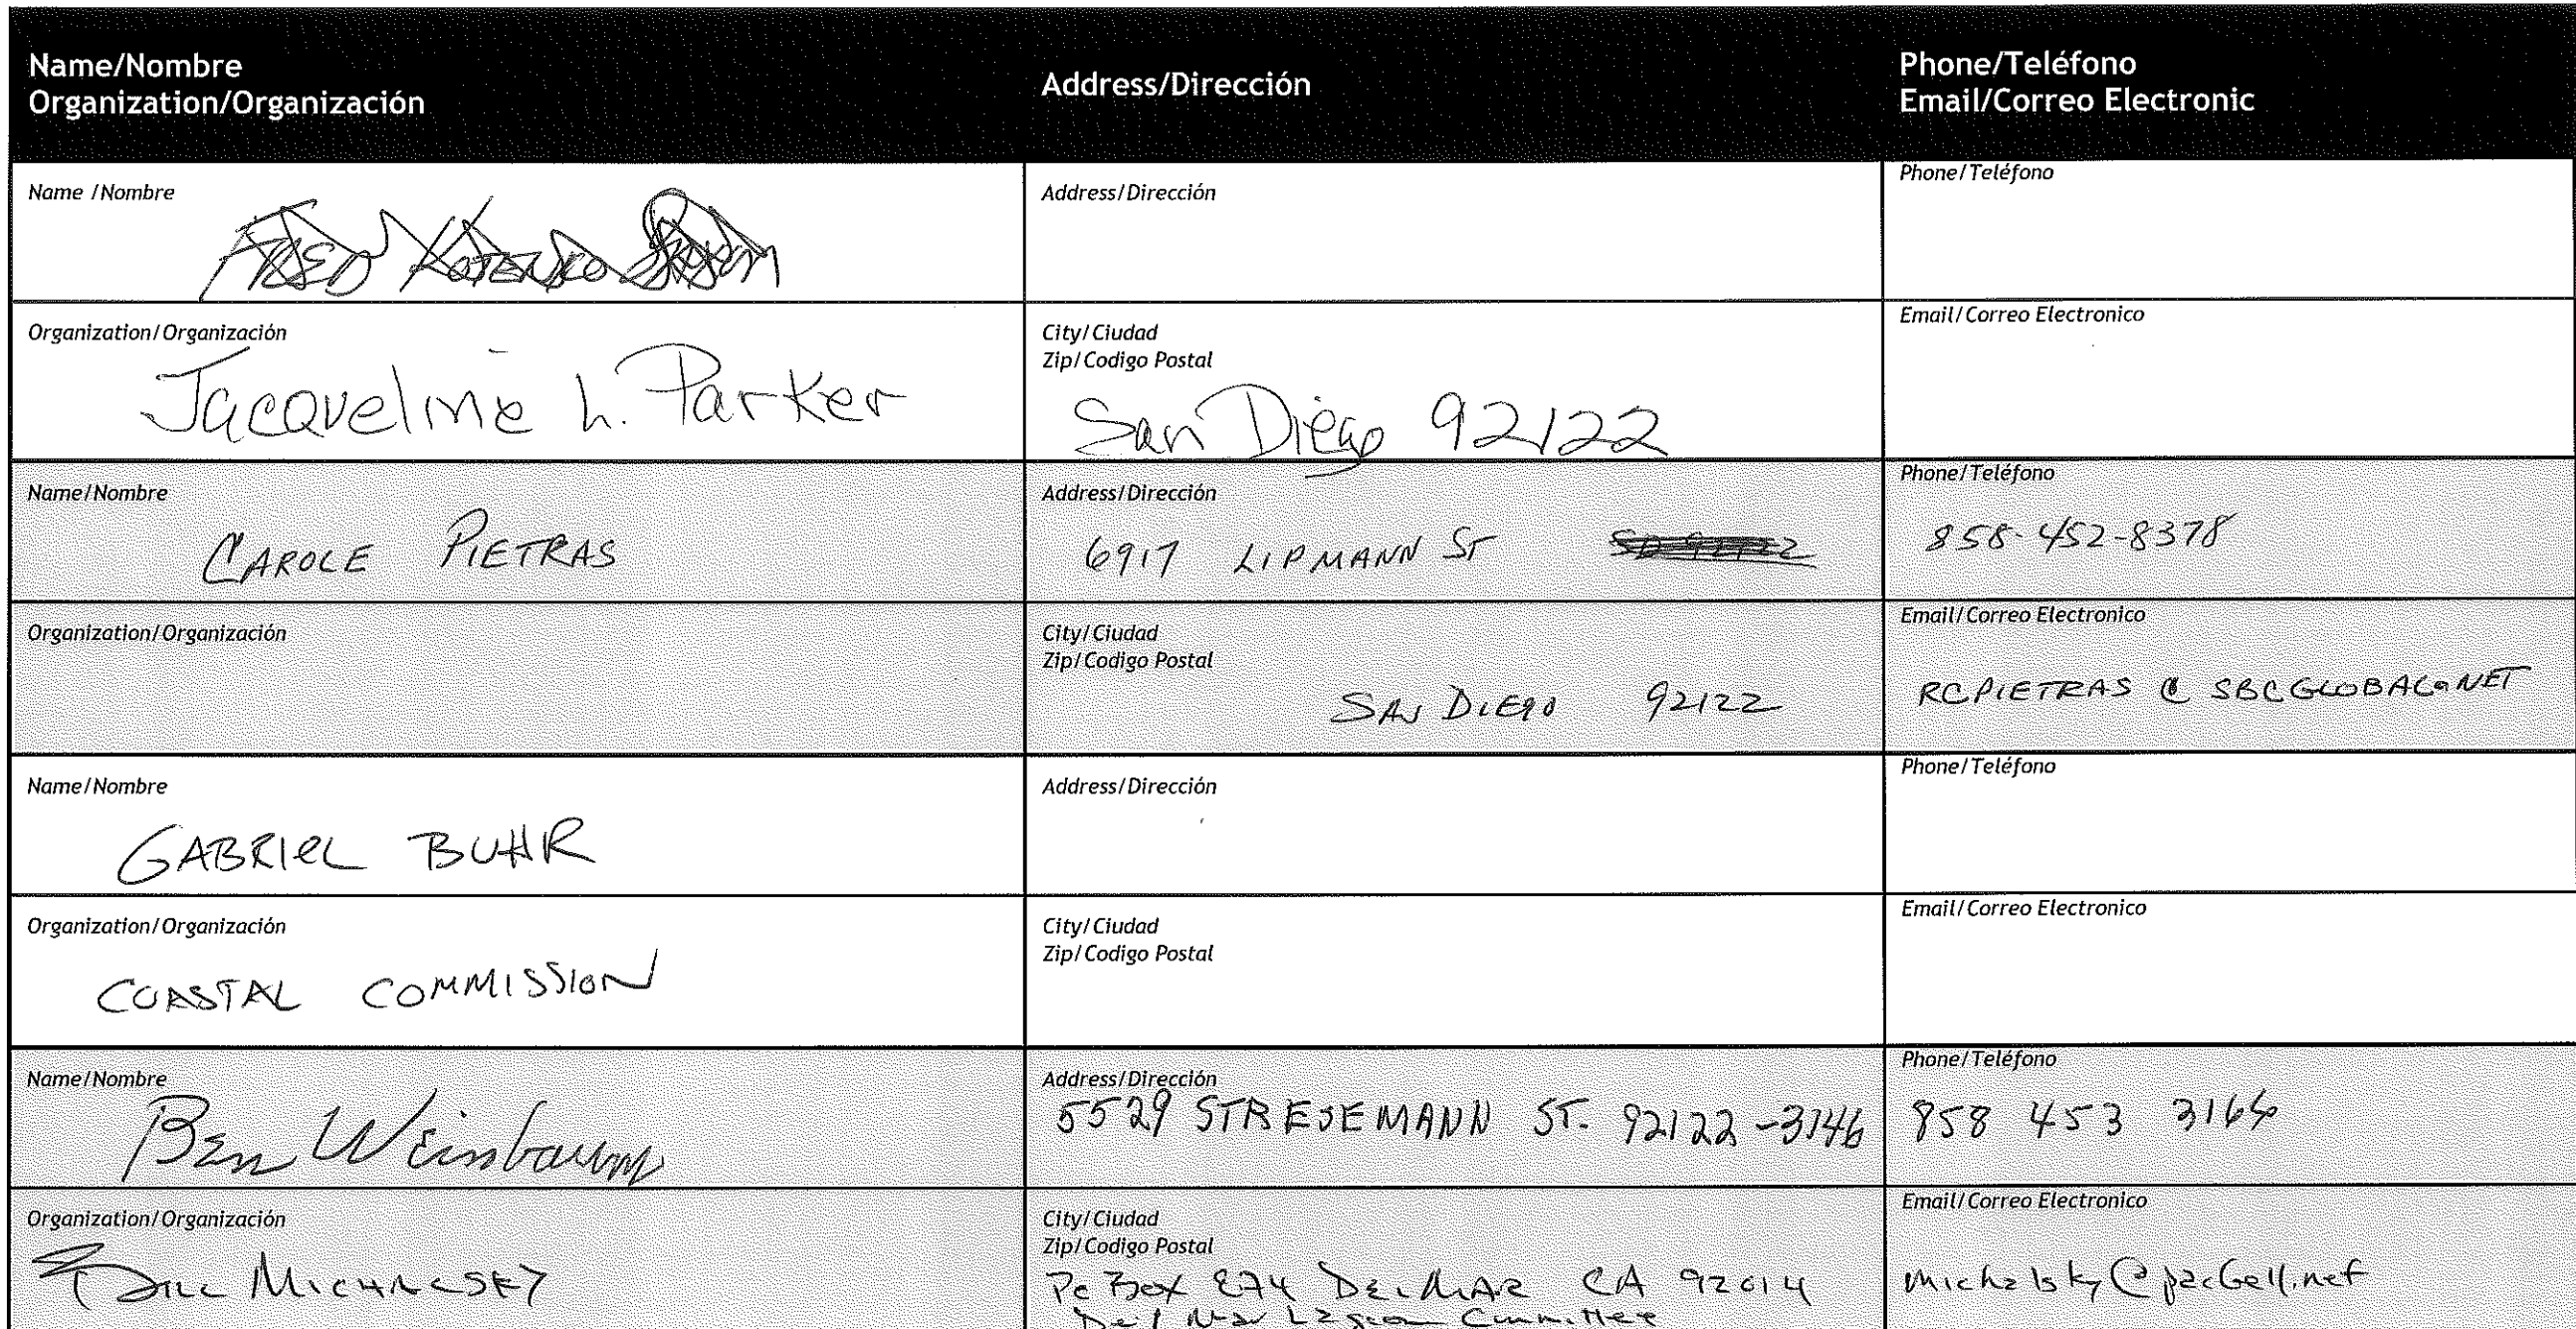 Name/Nombre
Organization/Organización
Address/Dirección
Phone/Teléfono
Email/Correo Electronic
Name /Nombre
Address/Dirección
Phone/Teléfono
Organization/Organización
Jacqueline L. Parker
City/Ciudad
Zip/Codigo Postal
San Diego 92122
Email/Correo Electronico
Name/Nombre
CAROLE PIETRAS
Address/Dirección
6917 LIPMANN ST
Phone/Teléfono
858-452-8378
Organization/Organización
City/Ciudad
Zip/Codigo Postal
SAN DIEGO 92122
Email/Correo Electronico
RCPIETRAS @ SBCGLOBAL.NET
Name/Nombre
GABRIEL BUHR
Address/Dirección
Phone/Teléfono
Organization/Organización
COASTAL COMMISSION
City/Ciudad
Zip/Codigo Postal
Email/Correo Electronico
Name/Nombre
Ben Weinbaum
Address/Dirección
5529 STRESEMANN ST. 92122-3146
Phone/Teléfono
858 453 3166
Organization/Organización
MICHALSKY
City/Ciudad
Zip/Codigo Postal
Po Box 874 DEL MAR CA 92014
Del Mar Lagoon Committee
Email/Correo Electronico
michalsky@pacbell.net